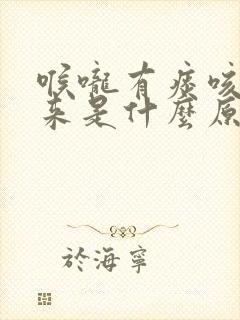 喉嚨有痰咳
来是什麼原
於海寧